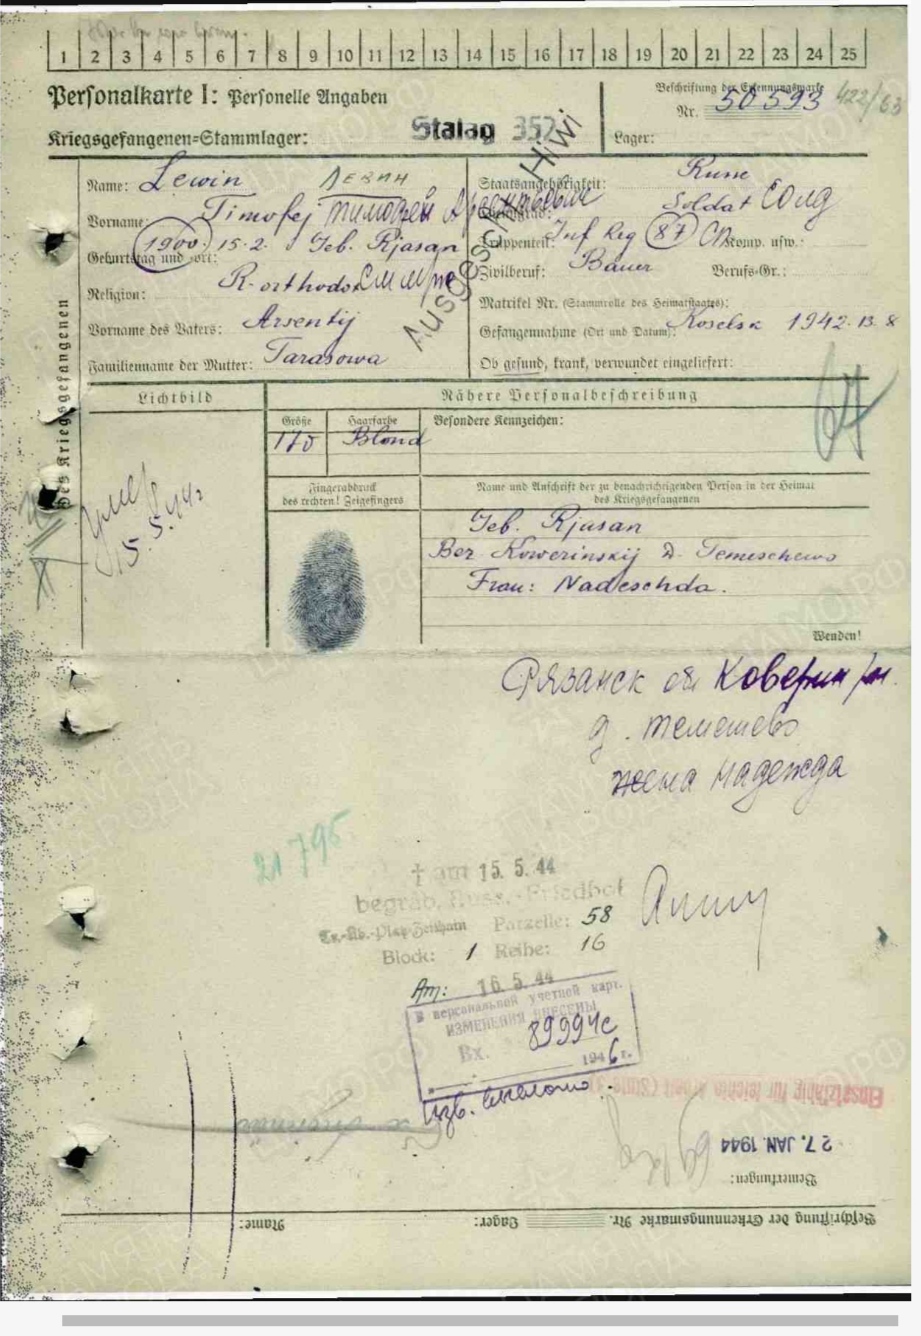 1 2 3 4 5 6 7 8 9 10 11 12 13 14 15 16 17 18 19 20 21 22 23 24 25
Personalkarte I: Personelle Angaben
Beschriftung der Erkennungsmarke
Nr. 50593
422/63
Kriegsgefangenen=Stammlager: Stalag 352
Lager:
Ausgesch. Hiwi
des Kriegsgefangenen
Name: Lewin Левин
Vorname: Timofej Тимофей Арсентьевич
Geburtstag und =ort: 1900 15.2. Geb. Rjasan
Religion: R-orthodox
Vorname des Vaters: Arsentij
Familienname der Mutter: Tarasowa
Staatsangehörigkeit: Russe
Dienstgrad: Soldat Солд
Truppenteil: Inf Reg 87 СП Komp. usw.:
Zivilberuf: Bauer Berufs-Gr.:
Matrikel Nr. (Stammrolle des Heimatstaates):
Gefangennahme (Ort und Datum): Koselsk 1942.13.8
Ob gesund, krank, verwundet eingeliefert:
67
Lichtbild
Nähere Personalbeschreibung
Größe
170
Haarfarbe
Blond
Besondere Kennzeichen:
Fingerabdruck
des rechten! Zeigefingers
Name und Anschrift der zu benachrichtigenden Person in der Heimat
des Kriegsgefangenen
Умер
15.5.44г
Geb. Rjasan
Bez. Kowerinskij D. Temeschewo
Frau: Nadeschda.
Wenden!
Рязанск об Коверин р-н.
д. Темешево
жена Надежда
21795.
† am 15. 5. 44
begrab. Russ.-Friedhof
Tr.-Üb.-Platz Zeithain Parzelle: 58
Block: 1 Reihe: 16
Am: 16. 5. 44
В персональной учетной карт.
ИЗМЕНЕНИЯ ВНЕСЕНЫ
Вх. 89994с
1946 г.
Einsatzfähig für leichte Arbeit (Stufe
27. JAN. 1944
Bemerkungen:
Beschriftung der Erkennungsmarke Nr. Lager: Name: